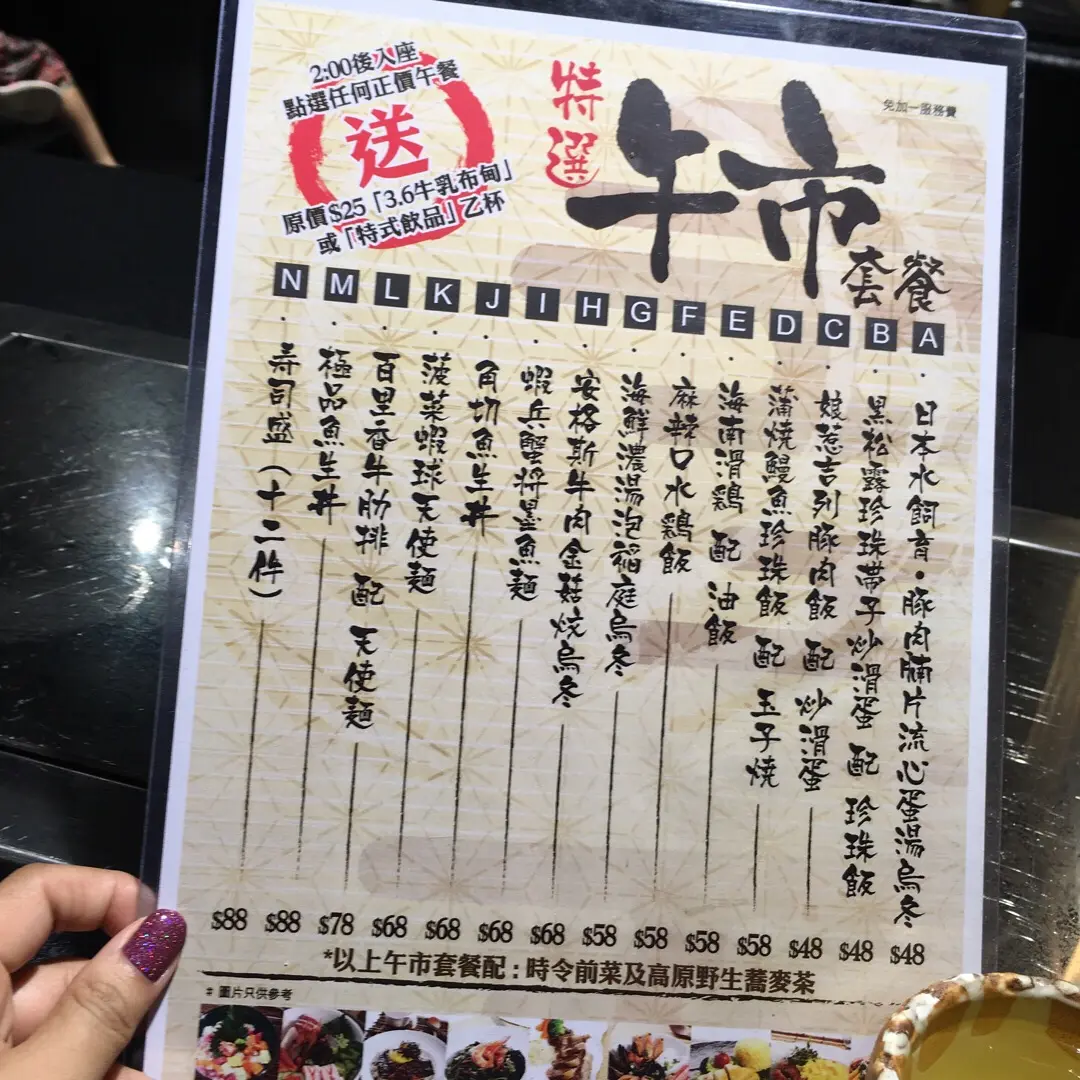 2:00後入座
點選任何正價午餐
送
原價$25「3.6牛乳布甸」
或「特式飲品」乙杯
特選
午市
套餐
免加一服務費
A · 日本水飼育·豚肉腩片流心蛋湯烏冬 $48
B · 黑松露珍珠帶子炒滑蛋 配 珍珠飯 $48
C · 娘惹吉列豚肉飯 配 炒滑蛋 $48
D · 蒲燒鰻魚珍珠飯 配 玉子燒 $58
E · 海南滑鶏 配 油飯 $58
F · 麻辣口水鶏飯 $58
G · 海鮮濃湯泡稲庭烏冬 $58
H · 安格斯牛肉金菇炒烏冬 $68
I · 蝦兵蟹将墨魚麵 $68
J · 角切魚生丼 $68
K · 菠菜蝦球天使麵 $68
L · 百里香牛肋排 配 天使麵 $78
M · 極品魚生丼 $88
N · 寿司盛（十二件） $88
*以上午市套餐配：時令前菜及高原野生蕎麥茶
# 圖片只供參考